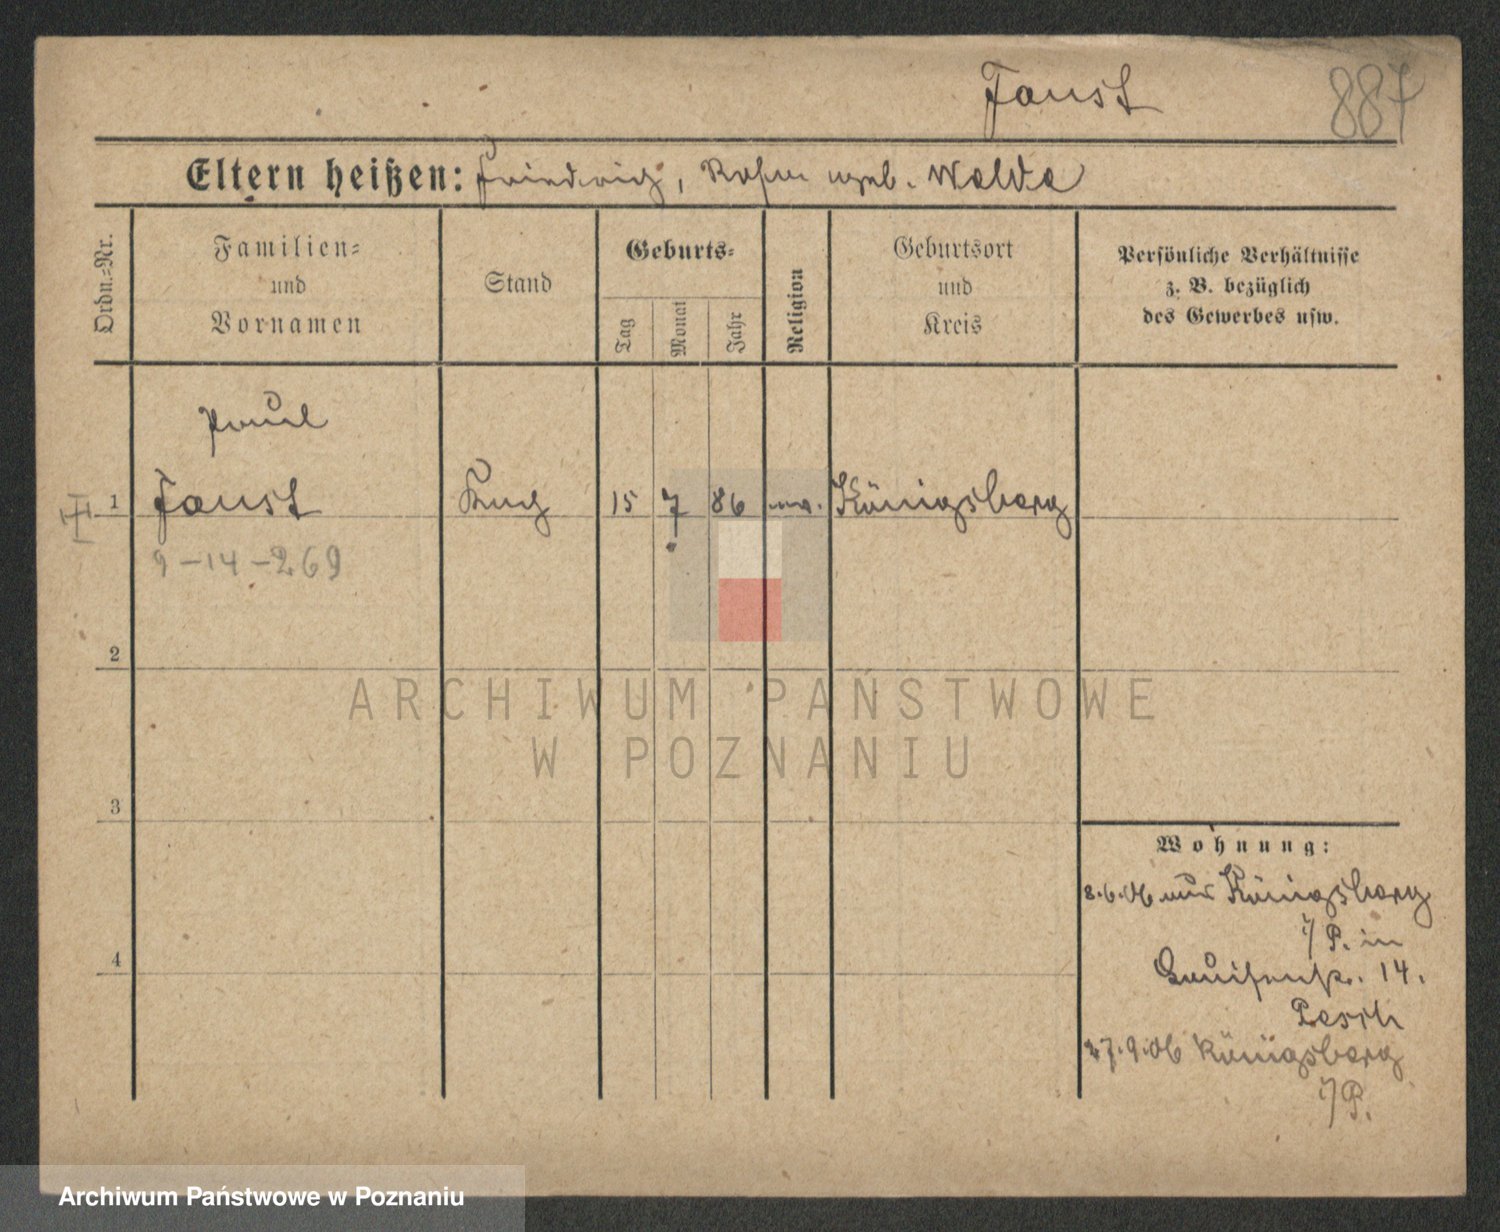 Faust
887
Eltern heißen: Friedrich, Rosa geb. Walda
Ordn.=Nr.
Familien=
und
Vornamen
Stand
Geburts=
Tag
Monat
Jahr
Religion
Geburtsort
und
Kreis
Persönliche Verhältnisse
z. B. bezüglich
des Gewerbes usw.
Paul
1 Faust 15 7 86 Königsberg
9-14-269
2
3
4
Wohnung:
8.6.06 aus Königsberg
i/P. in
14.
27.9.06 Königsberg
i/P.
ARCHIWUM PAŃSTWOWE
W POZNANIU
Archiwum Państwowe w Poznaniu